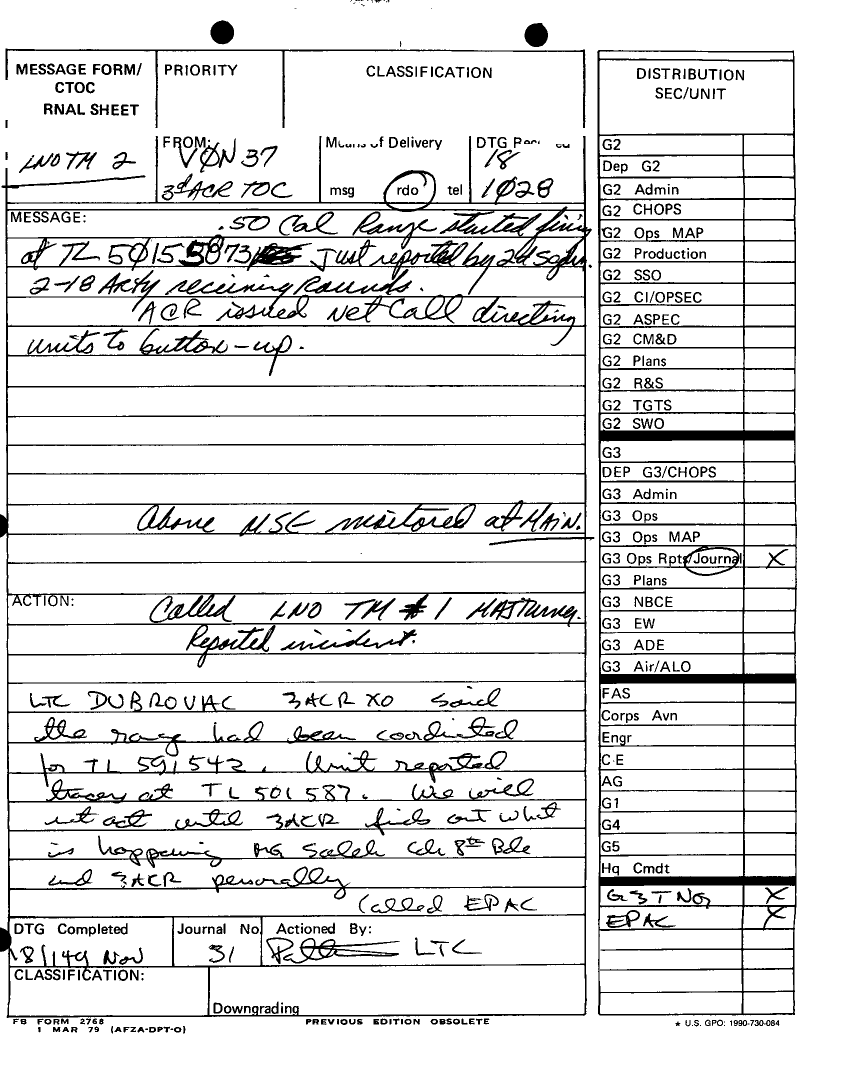 MESSAGE FORM/
CTOC
RNAL SHEET
LNO TM 2
PRIORITY
CLASSIFICATION
FROM:
VØN 37
3d ACR TOC
Means of Delivery
msg rdo tel
DTG
18
1028
MESSAGE: .50 Cal Range started firing
at TL 50155873 Just reported by 2d Sqdn.
2-18 Arty receiving Rounds.
ACR issued Net Call directing
units to button-up.
Above MSE monitored at MAIN.
ACTION: Called LNO TM #1 MAJ Turner.
Reported incident.
LTC DUBROVAC 3ACR XO said
the range had been coordinated
for TL 591542. Unit reported
tracers at TL 501587. We will
not act until 3ACR finds out what
is happening MG Saleh Cdr 8th Bde
and 3ACR personally
Called EPAC
DTG Completed
18/1149 Nov
Journal No
31
Actioned By:
LTC
CLASSIFICATION:
Downgrading
FB FORM 2768
1 MAR 79 (AFZA-DPT-O)
PREVIOUS EDITION OBSOLETE
DISTRIBUTION
SEC/UNIT
G2
Dep G2
G2 Admin
G2 CHOPS
G2 Ops MAP
G2 Production
G2 SSO
G2 CI/OPSEC
G2 ASPEC
G2 CM&D
G2 Plans
G2 R&S
G2 TGTS
G2 SWO
G3
DEP G3/CHOPS
G3 Admin
G3 Ops
G3 Ops MAP
G3 Ops Rpts/Journal X
G3 Plans
G3 NBCE
G3 EW
G3 ADE
G3 Air/ALO
FAS
Corps Avn
Engr
C E
AG
G1
G4
G5
Hq Cmdt
G3 TNG X
EPAC X
* U.S. GPO: 1990-730-084